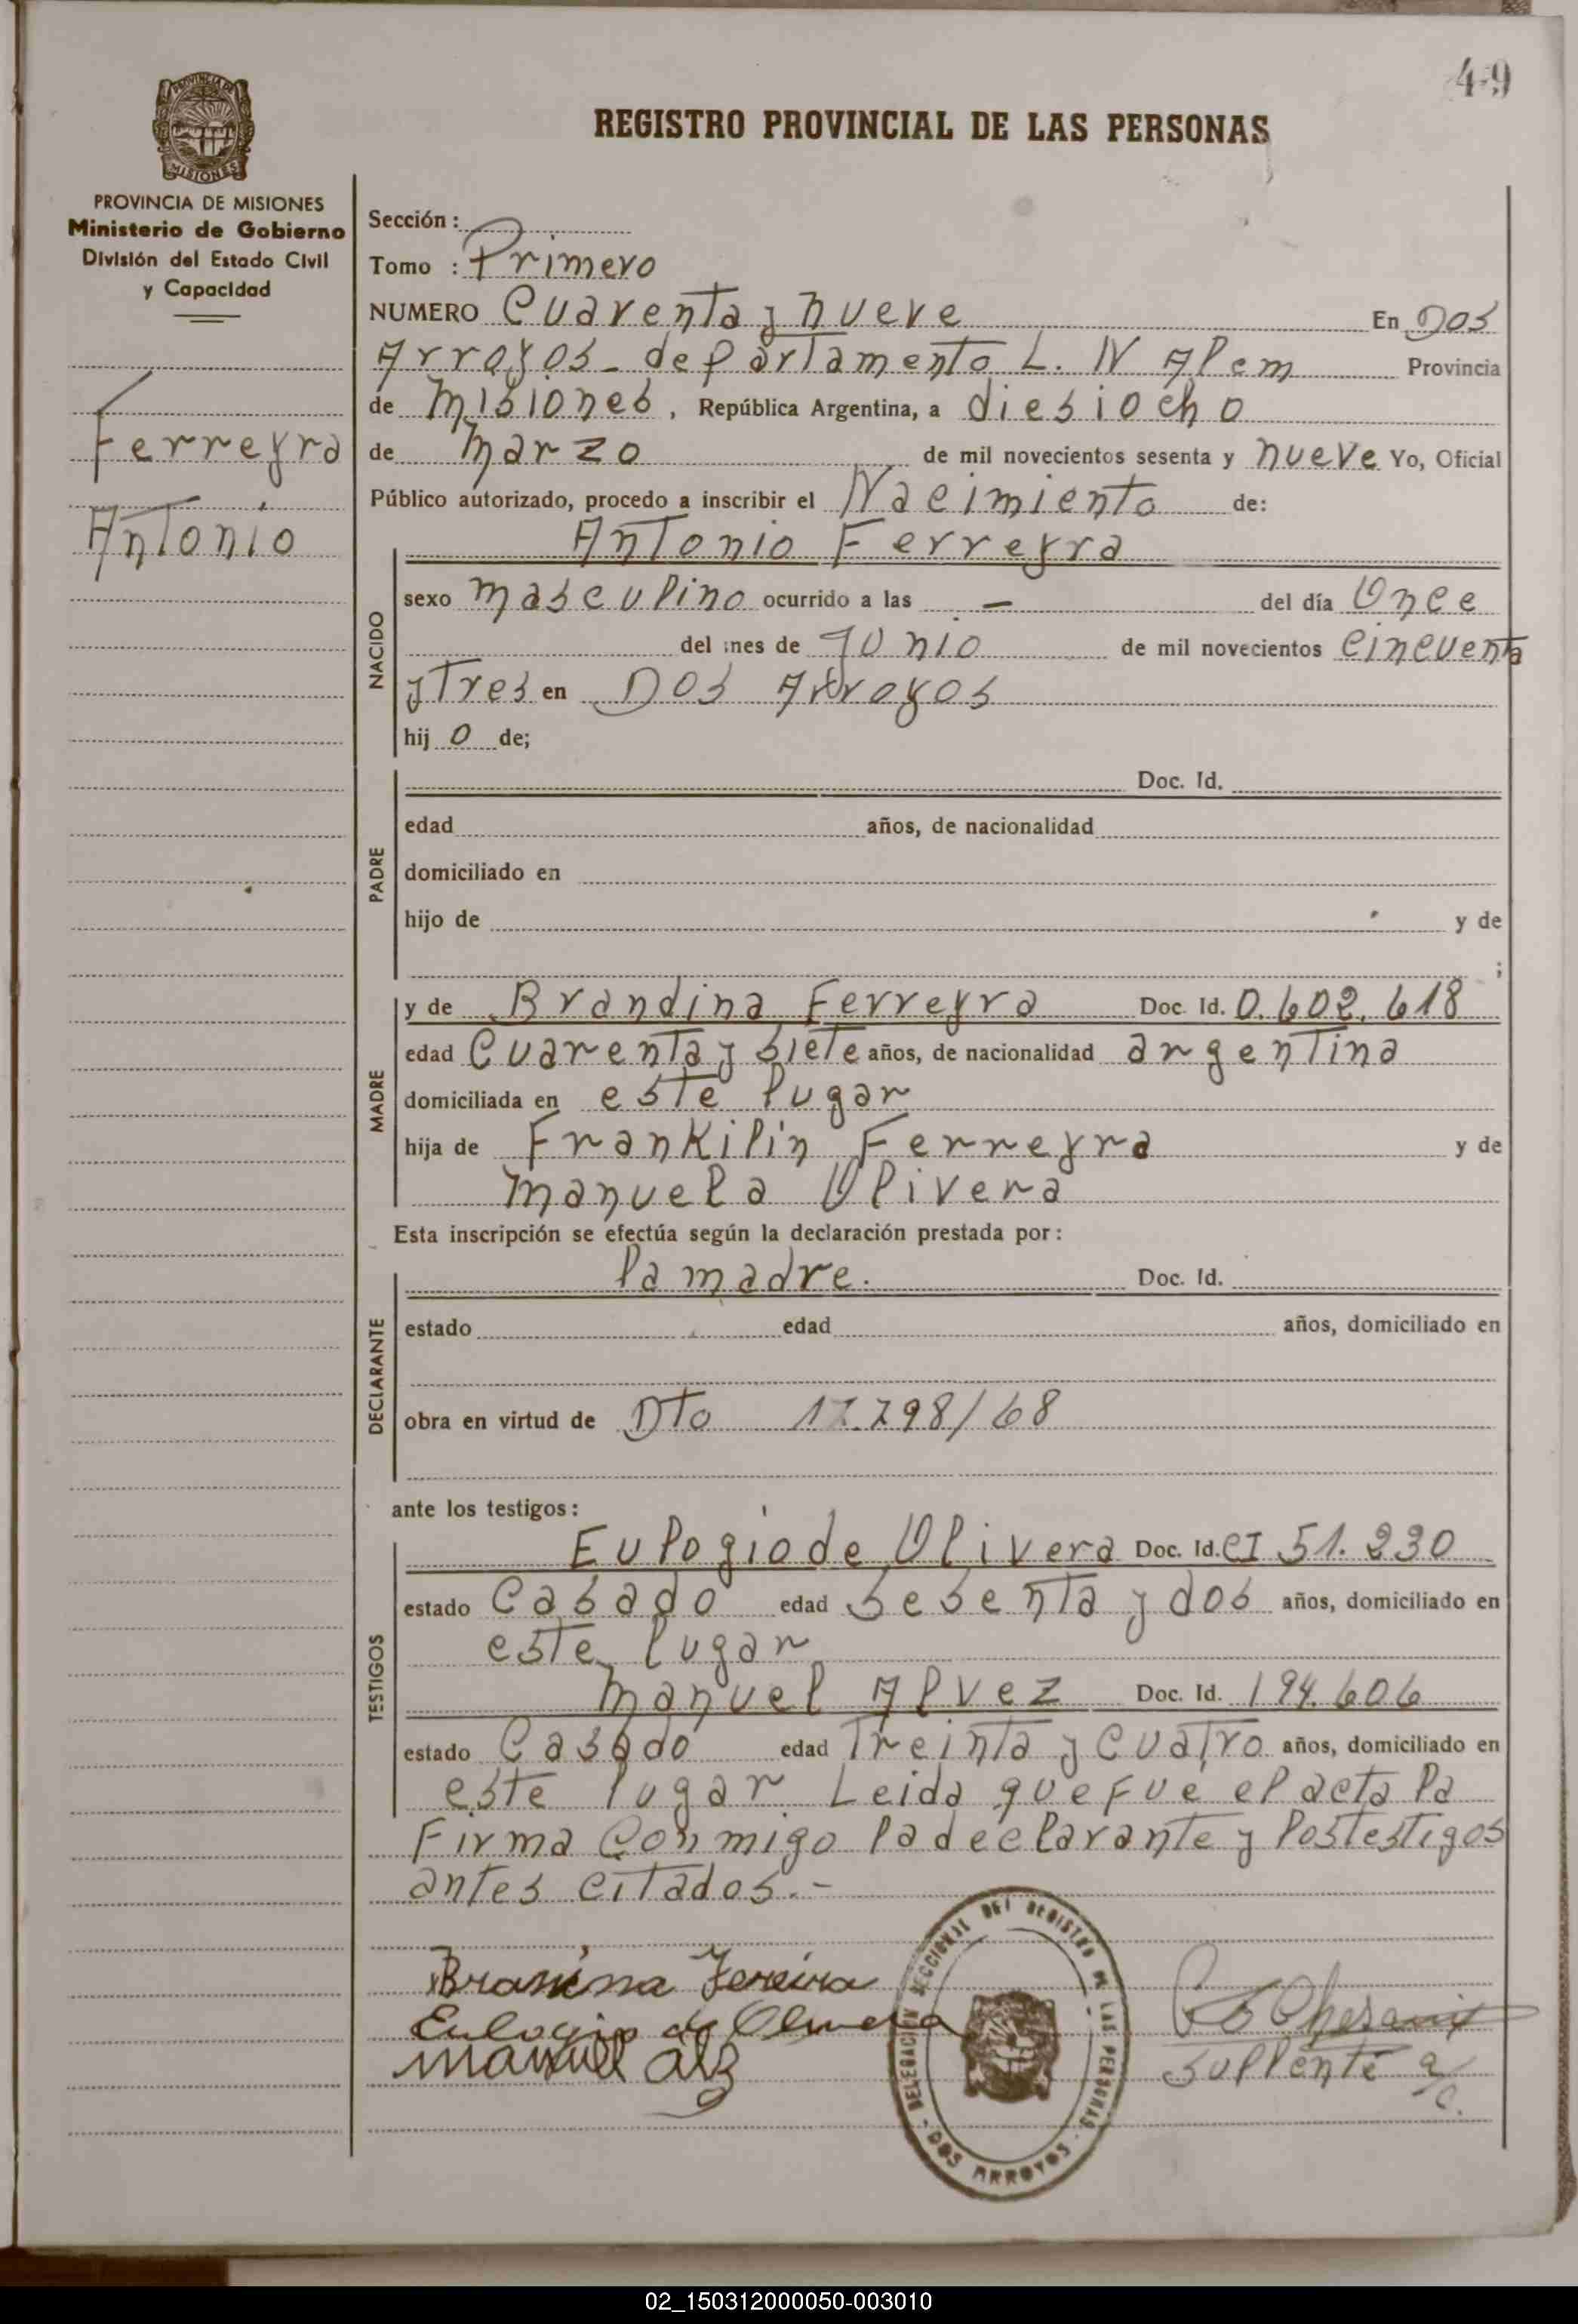 49
REGISTRO PROVINCIAL DE LAS PERSONAS
PROVINCIA DE MISIONES
MISIONES
PROVINCIA DE MISIONES
Ministerio de Gobierno
División del Estado Civil
y Capacidad
Ferreyra
Antonio
Sección :
Tomo : Primero
NUMERO Cuarenta y nueve En Dos
Arroyos - departamento L. N Alem Provincia
de Misiones, República Argentina, a diesiocho
de Marzo de mil novecientos sesenta y nueve Yo, Oficial
Público autorizado, procedo a inscribir el Nacimiento de:
Antonio Ferreyra
NACIDO
sexo masculino ocurrido a las — del día Once
del mes de Junio de mil novecientos cincuenta
y Tres en Dos Arroyos
hij o de;
PADRE
Doc. Id.
edad años, de nacionalidad
domiciliado en
hijo de y de
;
MADRE
y de Brandina Ferreyra Doc. Id. 0.602.618
edad Cuarenta y siete años, de nacionalidad argentina
domiciliada en este lugar
hija de Frankilin Ferreyra y de
Manuela Olivera
Esta inscripción se efectúa según la declaración prestada por:
DECLARANTE
la madre. Doc. Id.
estado edad años, domiciliado en
obra en virtud de Dto 17.798/68
ante los testigos:
TESTIGOS
Eulogio de Olivera Doc. Id. CI 51.230
estado Casado edad sesenta y dos años, domiciliado en
este lugar
Manuel Alvez Doc. Id. 194.606
estado Casado edad Treinta y cuatro años, domiciliado en
este lugar Leida que fue el acta la
Firma Conmigo la declarante y los testigos
antes citados.-
Fereira
Eulogio de Olivera
Manuel
DELEGACIÓN SECCIONAL DEL REGISTRO DE LAS PERSONAS - DOS ARROYOS -
Suplente a/c.
02_150312000050-003010